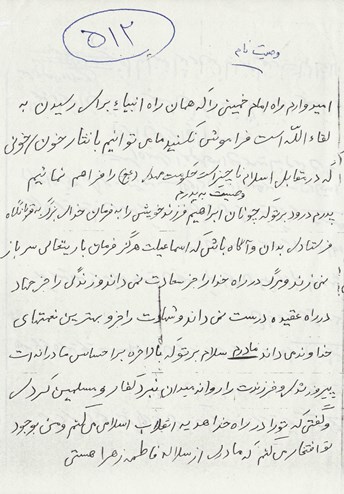 ۵۱۲
وصیت نامه
امیدوارم راه امام خمینی را که همان راه انبیاء برای رسیدن به
لقاء الله است فراموش نکنید ما می توانیم با نثار خون خونی
که در مقابل اسلام ناچیز است حکومت مهدی (عج) را فراهم نمائیم
وصیت به پدرم
پدرم درود بر تو که چونان ابراهیم فرزند خویش را به فرمان خدای بزرگ به قربانگاه
فرستادی بدان و آگاه باش که اسماعیلت هرگز از فرمان باریتعالی سر باز
نمی زند و مرگ در راه خدا را جز سعادت نمی داند و زندگی را جز جهاد
در راه عقیده درست نمی داند و شهادت را جزو بهترین نعمتهای
خداوند می داند مادرم سلام بر تو که بالاخره بر احساس مادرانه ات
پیروز شدی و فرزندت را روانه میدان نبرد کفار و مسلمین کردی
و گفتی که تو را در راه خدا هدیه به انقلاب اسلامی می کنم و من بوجود
تو افتخار می کنم که مادری از سلاله فاطمه زهرا هستی